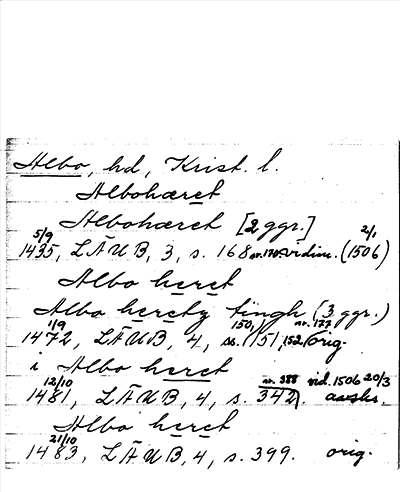 Albo, hd, Krist. l.
Albohæret
Albohæret [2 ggr.]
5/9 2/1
1435, LÄUB, 3, s. 168 nr. 170. vidim. (1506)
Albo heret
Albo herety tingh (3 ggr.)
1/9 150, nr. 177
1472, LÄUB, 4, ss. 151, 152, orig.
i Albo heret
12/10 nr. 388 vid. 1506 20/3
1481, LÄUB, 4, s. 342. avskr.
Albo heret
21/10
1483, LÄUB, 4, s. 399. orig.